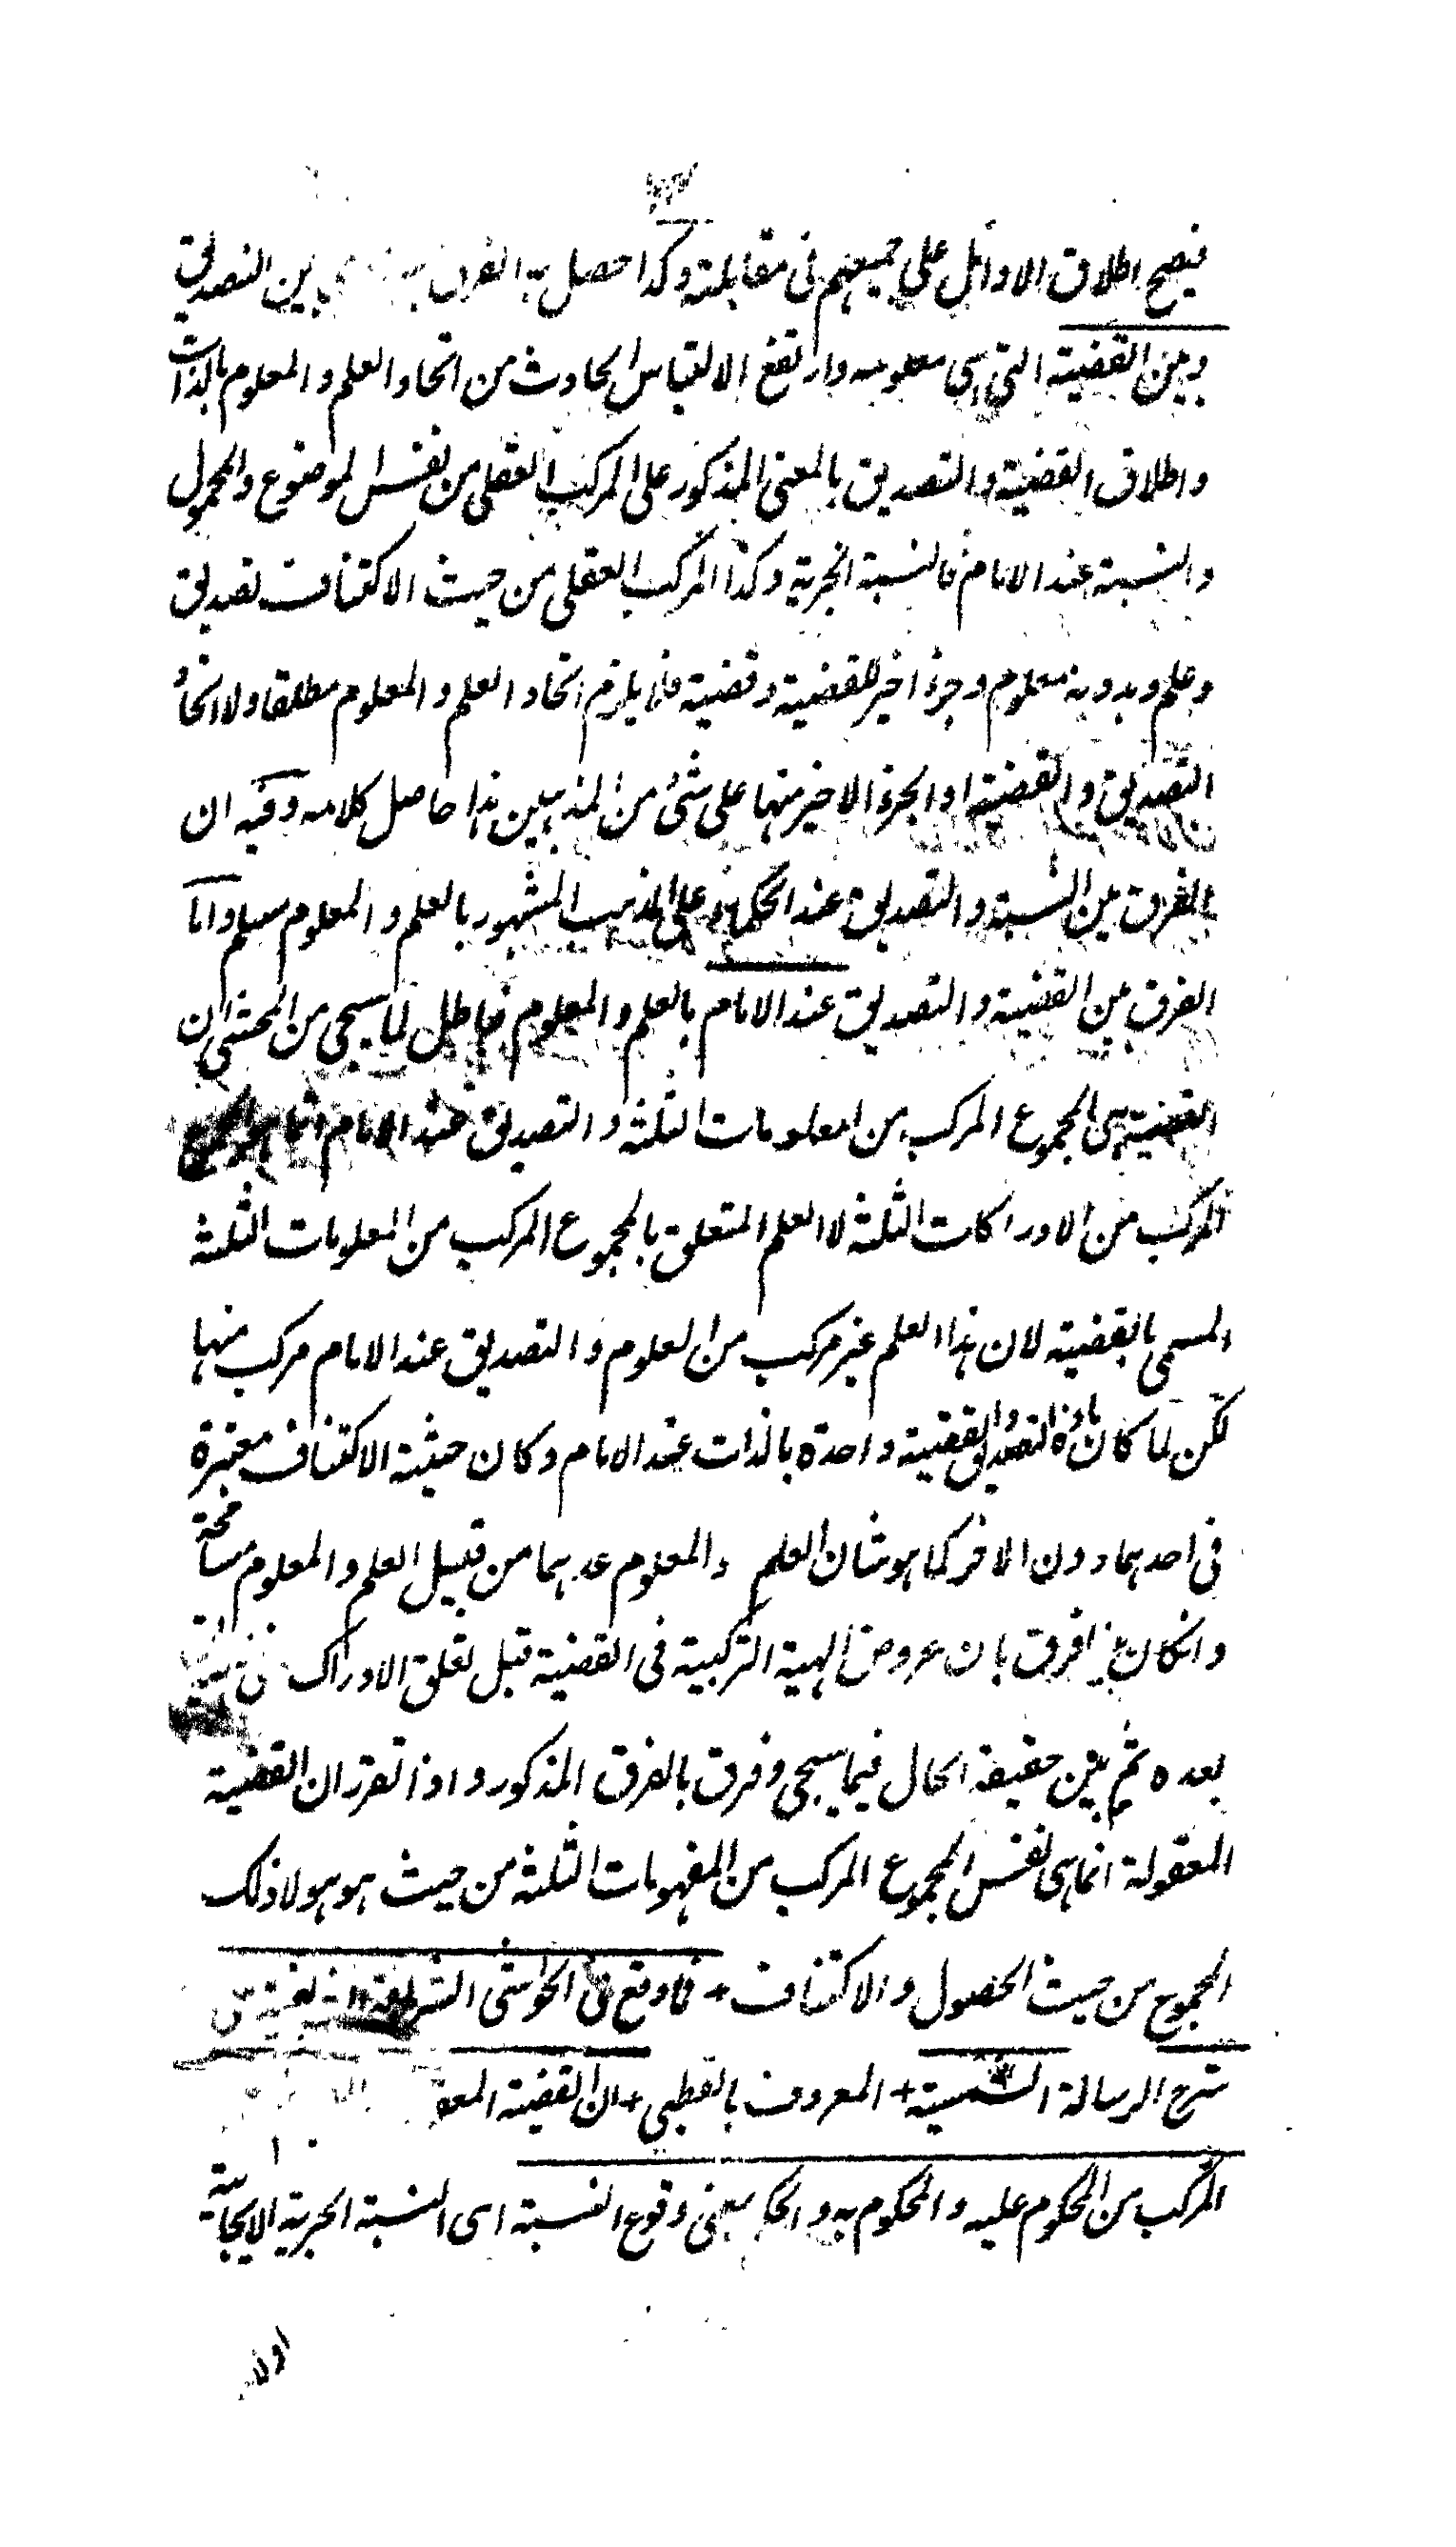 فيصح اطلاق الاوائل على جميعهم فى مقابلته وكذا حصل به الفرق بين التصديق
وبين القضية التى هى معلومه وارتفع الالتباس الحادث من اتحاد العلم والمعلوم بالذات
واطلاق القضية والتصديق بالمعنى المذكور على المركب العقلى من نفس الموضوع والمحمول
والنسبة عند الامام فالنسبة الخبرية وكذا المركب العقلى من حيث الاكتناف تصديق
وعلم وبدونه معلوم وجزء اخير للقضية وقضية فلا يلزم اتحاد العلم والمعلوم مطلقا ولا اتحاد
التصديق والقضية او الجزء الاخير منها على شئ من المذهبين هذا حاصل كلامه وفيه ان
الفرق بين النسبة والتصديق عند الحكماء على المذهب المشهور بالعلم والمعلوم مسلم واما
الفرق بين القضية والتصديق عند الامام بالعلم والمعلوم فباطل لما سيجى من المحشى ان
القضية هى المجموع المركب من المعلومات الثلثة والتصديق عند الامام انما هو المجموع
المركب من الادراكات الثلثة لا العلم المتعلق بالمجموع المركب من المعلومات الثلثة
المسمى بالقضية لان هذا العلم غير مركب من العلوم والتصديق عند الامام مركب منها
لكن لما كان مادة التصديق والقضية واحدة بالذات عند الامام وكان حيثية الاكتناف معتبرة
فى احدهما دون الاخر كما هو شان العلم والمعلوم عدهما من قبيل العلم والمعلوم مسامحة
وانكان بينهما فرق بان عروض الهيئة التركيبية فى القضية قبل تعلق الادراك
بعده ثم بين حقيقة الحال فيما سيجى وفرق بالفرق المذكور واذا تقرر ان القضية
المعقولة انما هى نفس المجموع المركب من المفهومات الثلثة من حيث هو هو لا ذلك
المجموع من حيث الحصول والاكتناف + فما وقع فى الحواشى الشريفية
شرح الرسالة الشمسية + المعروف بالقطبى + ان القضية
المركب من المحكوم عليه والمحكوم به والحكم بمعنى وقوع النسبة اى النسبة الخبرية الايجابية